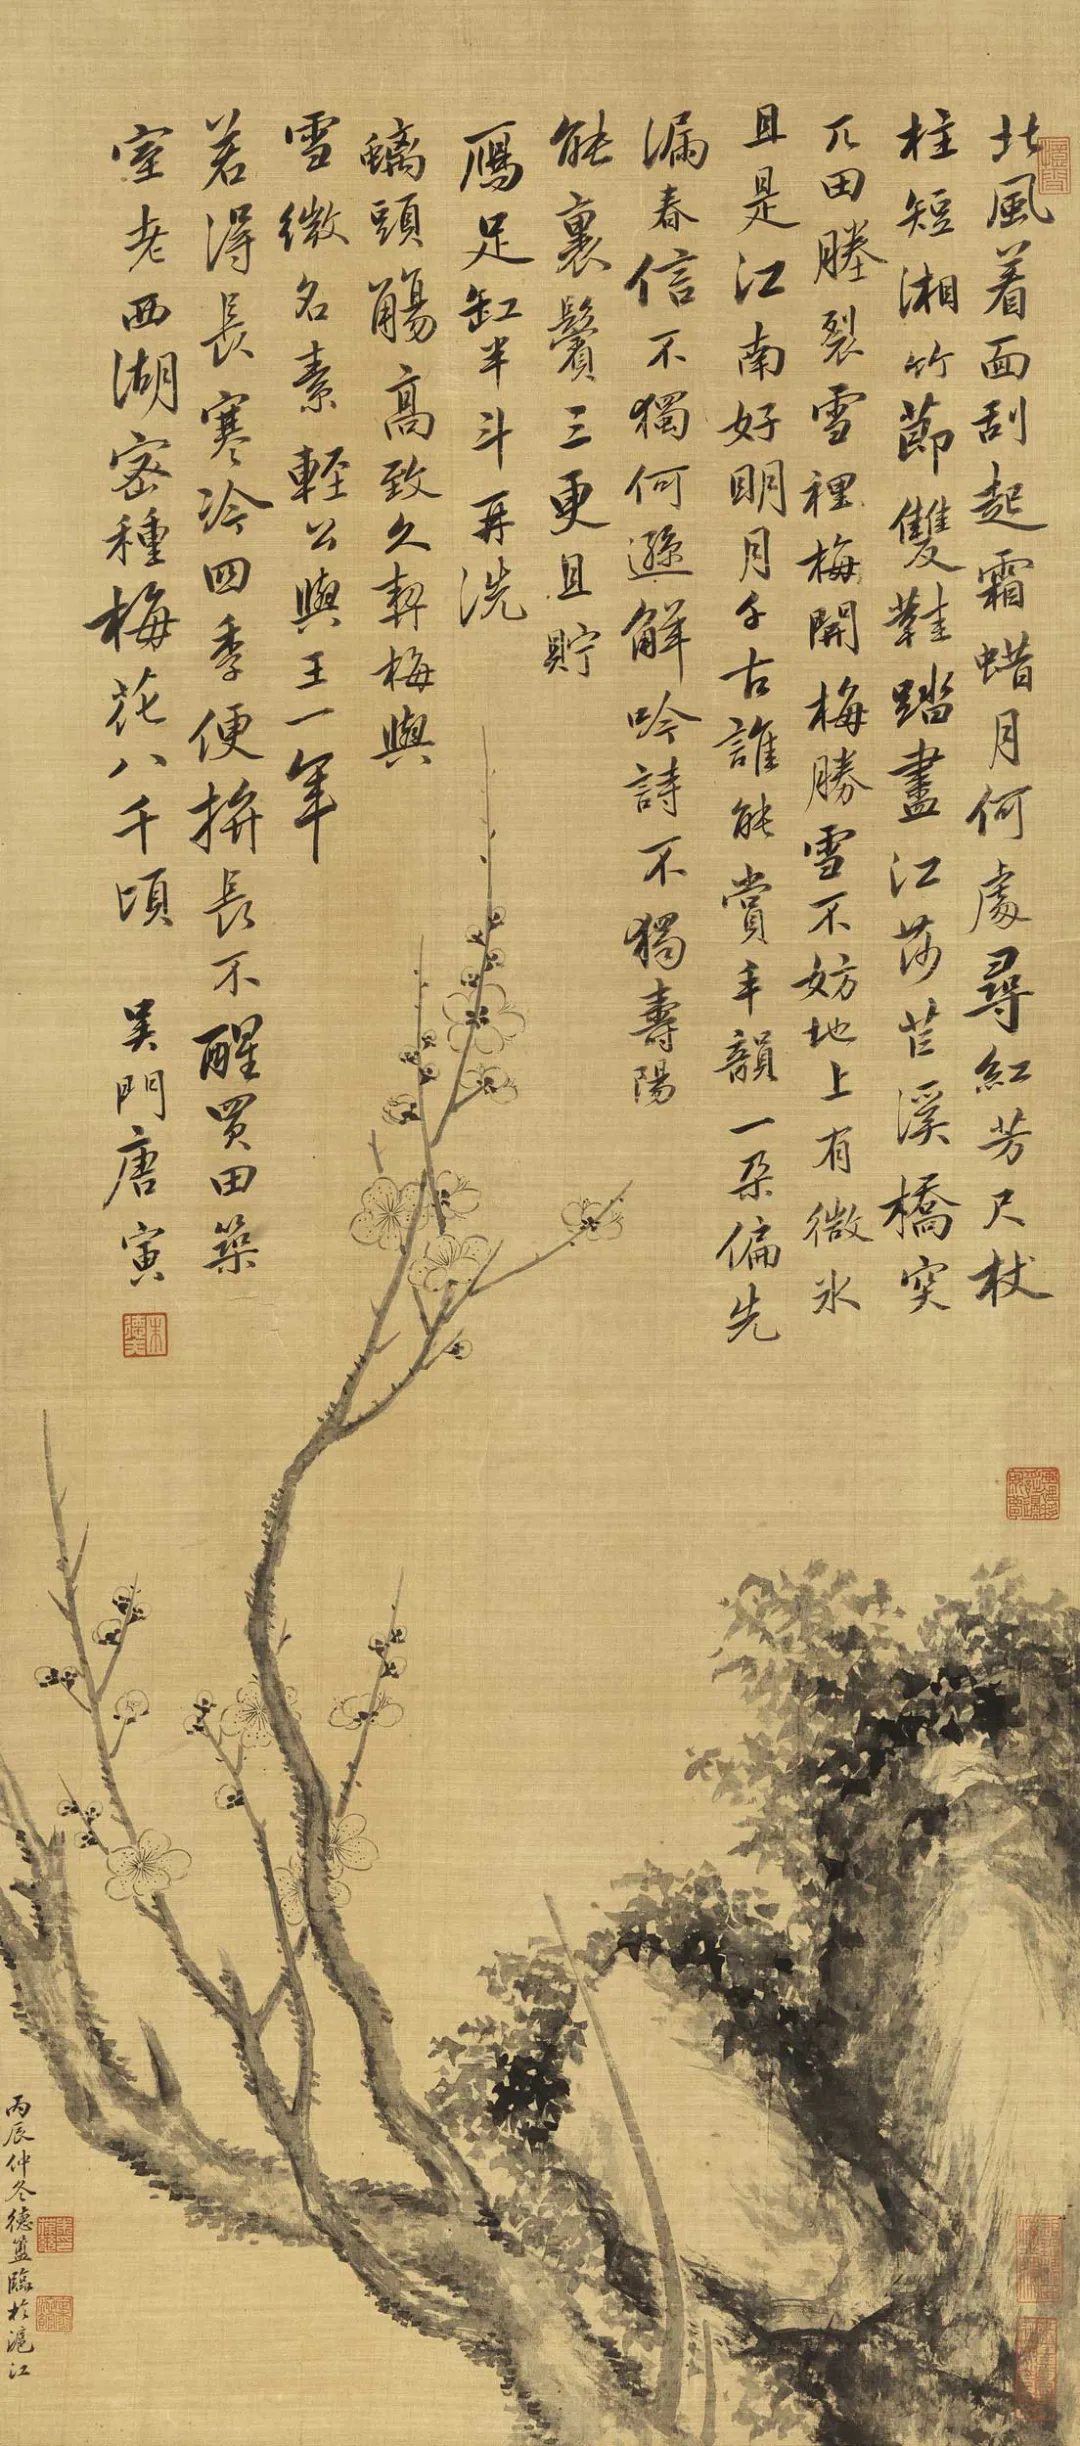 北風着面刮起霜蜡月何處尋紅芳尺杖
柱短湘竹節雙鞋踏盡江莎苔溪橋突
兀田塍裂雪裡梅開梅勝雪不妨地上有微氷
且是江南好明月千古誰能賞丰韻一朶偏先
漏春信不獨何遜解吟詩不獨壽陽
能裹鬢三更且貯
鴈足缸半斗再洗
螭頭觴高致久契梅與
雪微名素輕公與王一年
若得長寒冷四季便捹長不醒買田築
室老西湖密種梅花八千頃
吴門唐寅
丙辰仲冬德盫臨於滬江